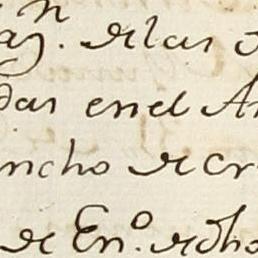 an. de las
das en el A
ncho de Cr
de En.º de dho